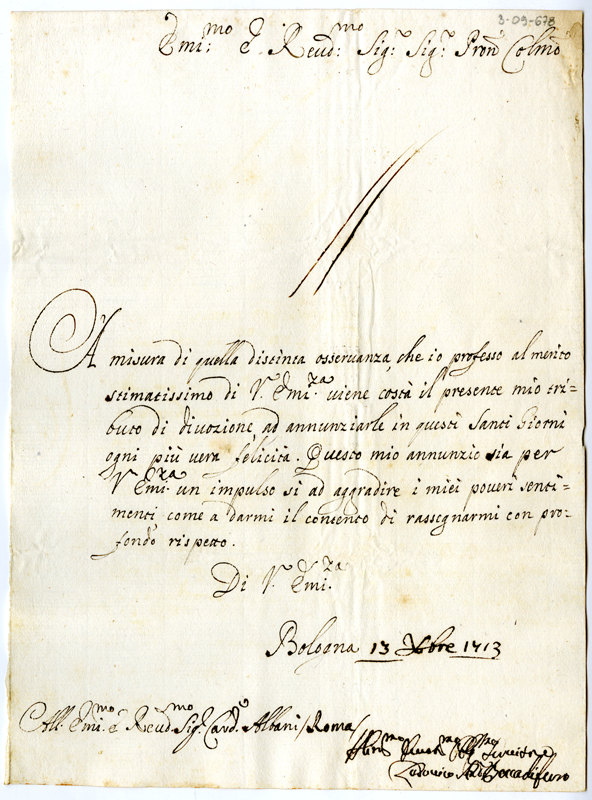 3-09-678
Emi:mo e Reud:mo Sig.r Sig.r Pron Colmo
A misura di quella distinta osseruanza, che io professo al merito
stimatissimo di V. Emi.za uiene costà il presente mio tri=
buto di diuozione, ad annunziarle in questi Santi Giorni
ogni più uera felicità. Questo mio annunzio sia per
V. Emi.za un impulso si ad aggradire i miei poueri senti=
menti, come a darmi il contento di rassegnarmi con pro=
fondo rispetto.
Di V. Emi.za
Bologna 13 Xbre 1713
All. Emi.mo e Reud.mo Sig.r Card. Albani / Roma /
Seruitore
Lodouico Beccadelli